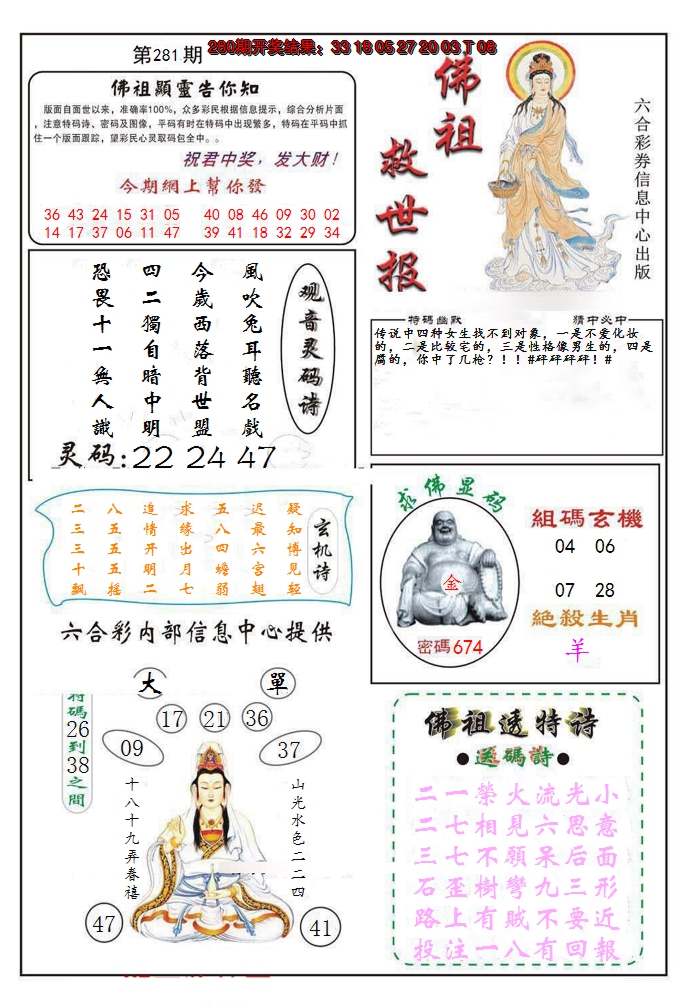 第281期
280期开奖结果：33 18 05 27 20 03 T 08
佛祖顯靈告你知
版面自面世以来，准确率100%，众多彩民根据信息提示，综合分析片面
，注意特码诗、密码及图像，平码有时在特码中出现繁多，特码在平码中抓
住一个版面跟踪，望彩民心灵取码包全中。。
祝君中奖，发大财！
今期網上幫你發
36 43 24 15 31 05 40 08 46 09 30 02
14 17 37 06 11 47 39 41 18 32 29 34
佛祖
救世报
六合彩券信息中心出版
观音灵码诗
風吹兔耳聽名戲
今歲西落背世盟
四二獨自暗中明
恐畏十一無人識
灵码:22 24 47
特碼幽默 猜中必中
传说中四种女生找不到对象，一是不爱化妆
的，二是比较宅的，三是性格像男生的，四是
腐的，你中了几枪？！！#砰砰砰砰！#
玄机诗
疑知博见轻
迟最六宫翅
五八四蟾弱
求缘出月七
追情开明二
八五五五摇
二三三十飘
六合彩内部信息中心提供
求佛显码
金
密碼674
組碼玄機
04 06
07 28
絕殺生肖
羊
大 單
特碼26到38之間
17 21 36
09 37
十八十九弄春禧
山光水色二二四
47 41
佛祖透特诗
●送碼詩●
二一榮火流光小
二七相見六思意
三七不願呆后面
石歪樹彎九三形
路上有贼不要近
投注一八有回報